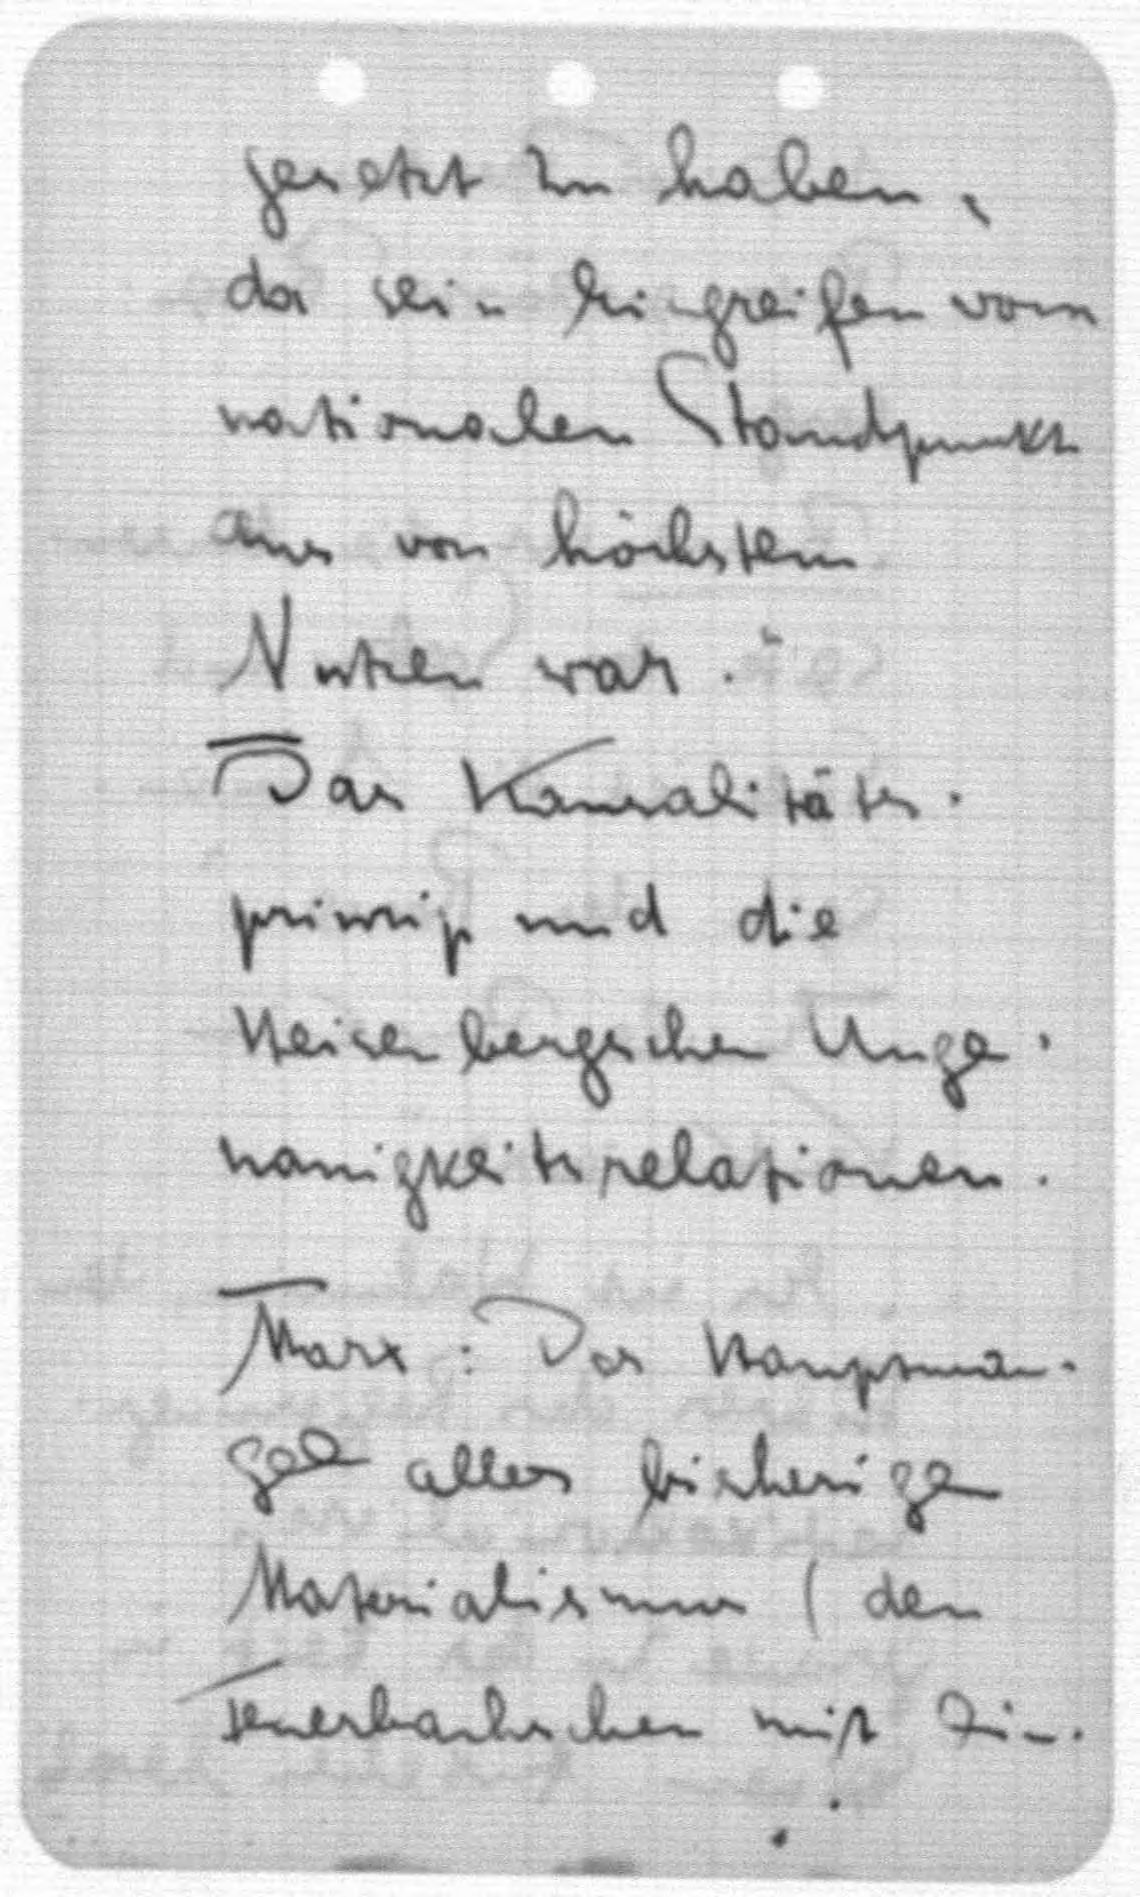 gesetzt zu haben,
da sein Eingreifen vom
nationalen Standpunkt
aus von höchstem
Nutzen war."
Das Kausalitäts-
prinzip und die
Heisenbergschen Unge-
nauigkeitsrelationen.
Marx: Der Hauptman-
gel alles bisherigen
Materialismus (den
Feuerbachschen mit ein-